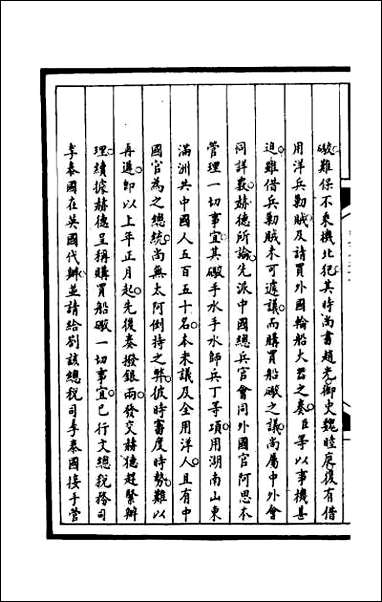 礮難保不乘機北犯其時尚書趙光御史魏睦庭復有借
用洋兵勦賊及請買外國輪船大礮之奏臣等以事機甚
迫雖借兵勦賊未可遽議而購買船礮之議尚屬中外會
同詳覈赫德所論先派中國總兵官會同外國官阿思本
管理一切事宜其礮手水手水師兵丁等項用湖南山東
滿洲共中國人五百五十名本未議及全用洋人且有中
國官為之總統尚無太阿倒持之弊彼時審度時勢難以
再遲即以上年正月起先後奏撥銀兩發交赫德趕緊辦
理續據赫德呈稱購買船礮一切事宜已行文總稅務司
李泰國在英國代辦並請給劄該總稅司李泰國接手管